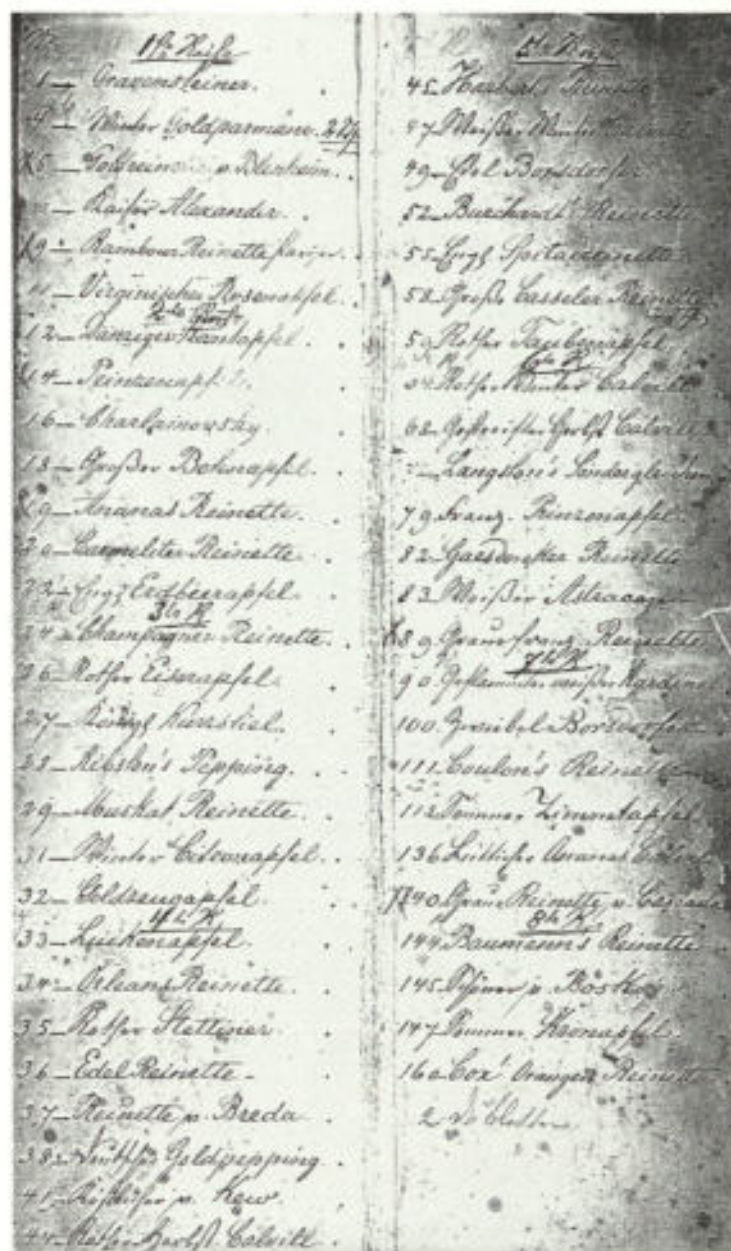 No 1te Reihe
1 – Gravensteiner.
4 – Winter Goldparmäne.
5 – Goldreinette v. Blenheim.
– Kaiser Alexander.
9 – Rambour Reinette
11 – Virginischer Rosenapfel.
2te Reihe
12 – Danziger Kantapfel.
14 – Prinzenapfel.
16 – Charlamowsky.
18 – Großer Bohnapfel.
19 – Ananas Reinette.
20 – Carmeliter Reinette.
22 – Engl Erdbeerapfel.
3te R
24 – Champagner Reinette.
26 – Rother Eiserapfel.
27 – Königl Kurzstiel.
28 – Ribston's Pepping.
29 – Muskat Reinette.
31 – Winter Citronapfel.
32 – Goldzeugapfel.
4te R
33 – Luikenapfel.
34 – Orleans Reinette.
35 – Rother Stettiner.
36 – Edel Reinette –
37 – Reinette v. Breda
38 – Deutscher Goldpepping.
41 – v. Kew.
44 – Rother Herbst Calvill.
5te Reihe
45 Harberts Reinette
47 Weißer Winter Calvill
49 – Edel Borsdorfer.
52 – Burchardt's Reinette
55 – Engl Spitalreinette
58 – Große Casseler Reinette
59 Rother Taubenapfel
6te R
Rother Winter Calvill
68 – Gestreifter Herbst Calvill
– Langston's Sondergleichen
79 Franz. Prinzenapfel.
82 – Gaesdonker Reinette
83 – Weißer Astracan
89 – Graue franz. Reinette
7te R
90. Geflammter weißer Kardinal
100. Zwiebel Borsdorfer
111. Coulon's Reinette
112 Pommer Zimmtapfel
136 Ananas
140 Graue Reinette v.
8te R
144 Baumann's Reinette
145 Schöner v. Boskoop
147 Pommer Kronapfel.
160 Cox' Orangen Reinette
2